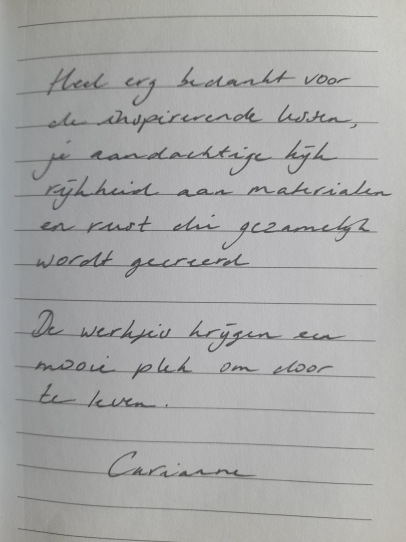 Heel erg bedankt voor
de inspirerende lessen,
je aandachtige kijk
rijkheid aan materialen
en rust die gezamelijk
wordt gecreerd
De werkjes krijgen een
mooie plek om door
te leven.
Carianne